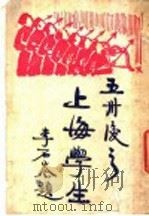 五卅後之
上海學生
李石岑題